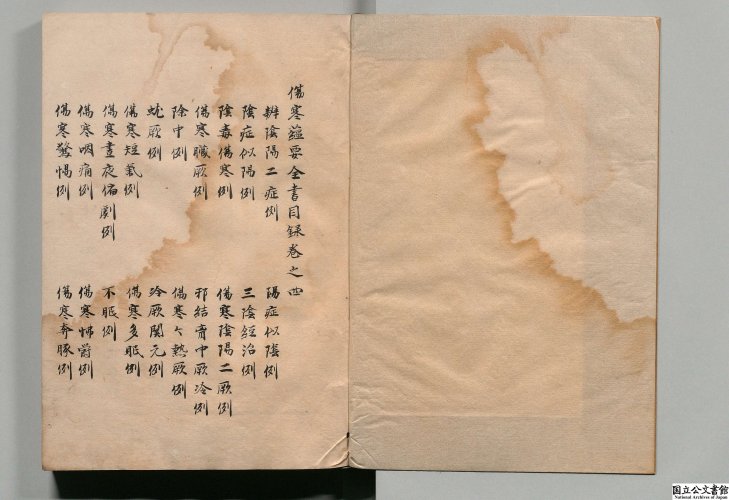 傷寒蘊要全書目録巻之四
辨陰陽二症例
陽症似陰例
陰症似陽例
三陰經治例
陰毒傷寒例
傷寒陰陽二厥例
傷寒臓厥例
邪結胷中厥冷例
除中例
傷寒熱厥例
蚘厥例
冷厥関元例
傷寒短氣例
傷寒多眠例
傷寒晝夜偏劇例
不眠例
傷寒咽痛例
傷寒怫欝例
傷寒驚惕例
傷寒奔豚例
国立公文書館
National Archives of Japan